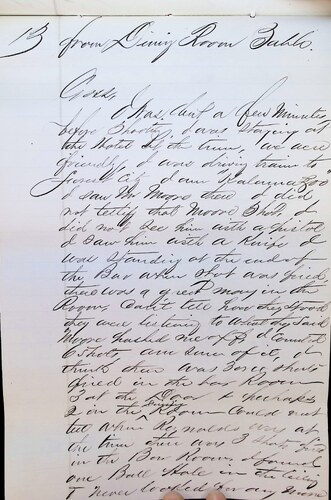 13 from Dining Room Table.
Cross,
I was but a few minutes
before shooting, I was staying at
the Hotel at the time, we were
friendly, I was driving train to
Forest City I am
I saw Mr Moore there I did
not testify that Moore shot I
did not see him with a pistol
I saw him with a knife I
was standing at the end of
the Bar when shot was fired
there was a great many in the
Room, Can't tell how they stood
they were listening to what they said
Moore pushed me I counted
6 shots, am sure of it, I
think there was 3 or 4 shots
fired in the bar Room
3 at the Door & perhaps
2 in the Dining Room could not
tell where Reynolds was at
the time there was 3 shots fired
in the Bar Room I found
one Ball Hole in the
I never looked for any more